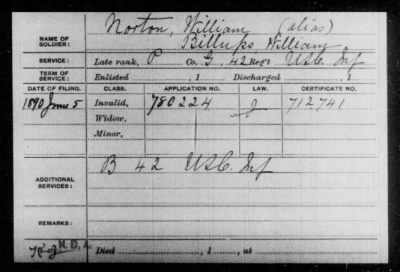 Norton, William (alias)
NAME OF SOLDIER: Billups, William
SERVICE: Late rank, P Co. G, 42 Reg't U.S.C. Inf
TERM OF SERVICE: Enlisted , 1 Discharged , 1
DATE OF FILING. CLASS. APPLICATION NO. LAW. CERTIFICATE NO.
1890 June 5 Invalid, 780224 J 712741
Widow,
Minor,
B 42 U.S.C. Inf
ADDITIONAL SERVICES:
REMARKS:
Died , 1 , at